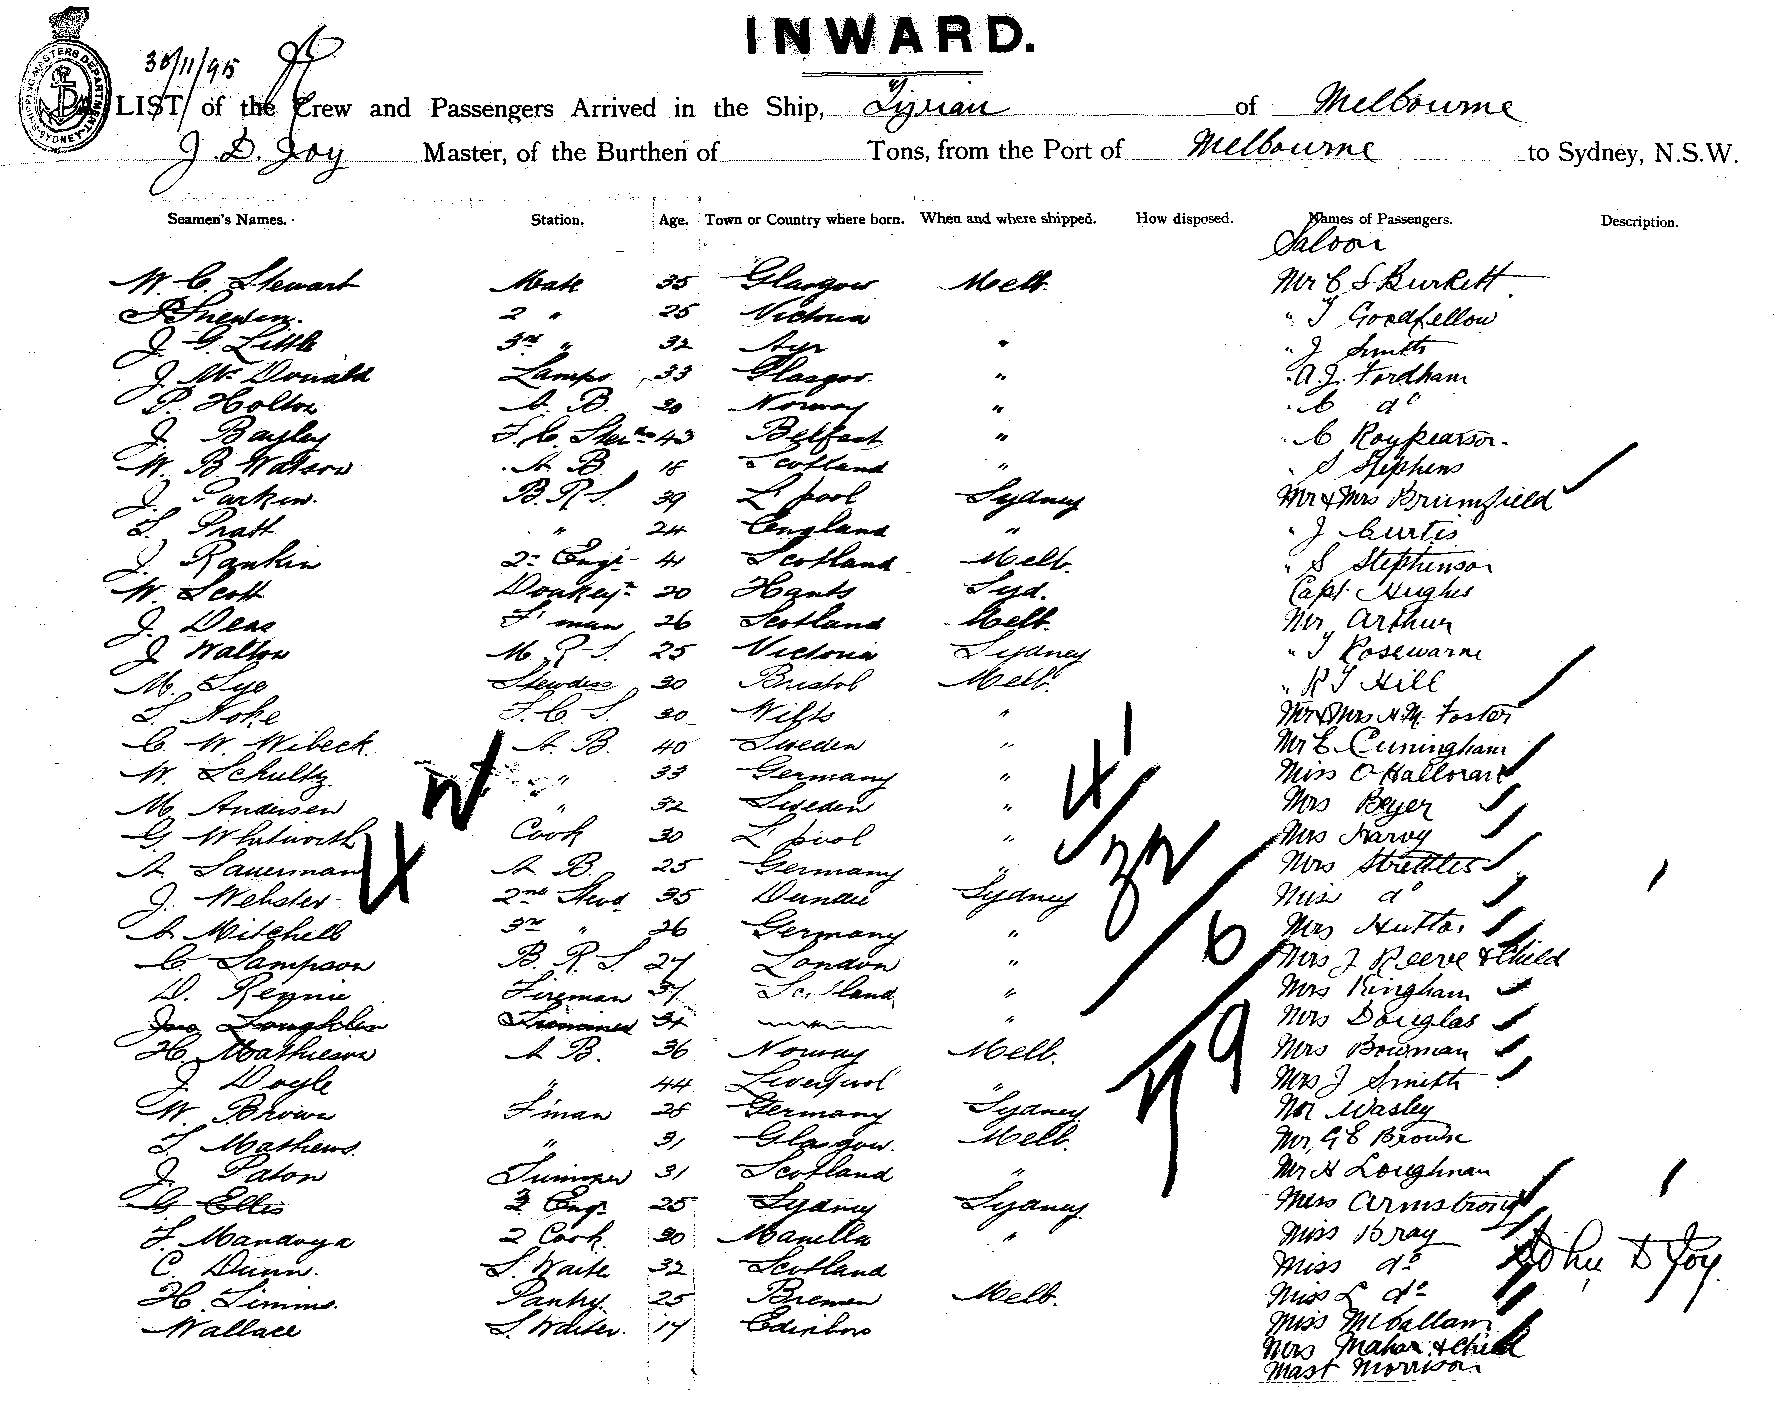 INWARD.
30/11/95
LIST of the Crew and Passengers Arrived in the Ship, Tyrian of Melbourne
J. D. Joy Master, of the Burthen of Tons, from the Port of Melbourne to Sydney, N.S.W.
Seamen's Names. Station. Age. Town or Country where born. When and where shipped. How disposed. Names of Passengers. Description.
Saloon
W. C. Stewart Mate 35 Glasgow Melb. Mr C S Burkett
2 " 25 Victoria " T Goodfellow
J. G. Little 3rd " 32 Ayr " " J Smith
J. Mc Donald Lamps 33 Glasgow " " A. J. Fordham
P. Holton A. B. 30 Norway " " C do
J. Bayley F. C. 43 Belfast " " C Roypearson
W. B Watson A B 18 Scotland " " S Stephens
J. Parkin. B. R. S. 39 L'pool Sydney Mr & Mrs Brumfield
T. Pratt " 24 England " " J Curtis
J. Rankin 2nd Engr 41 Scotland Melb. " S Stephenson
W. Scott Donkeyn 20 Hants Syd. Capt Hughes
J. Deas F'man 26 Scotland Melb. Mr Arthur
J Walton M. R. S. 25 Victoria Sydney " T Rosewarne
M. Tye Stewdess 30 Bristol Melb. " R T Hill
T. Noke F. C. S. 30 Wilts " Mr & Mrs H. M. Foster
C. W. Wibeck A. B. 40 Sweden " Mr E Cuningham
W. Schultz " 33 Germany " Miss O Halloran
M. Andersen " 32 Sweden " Mrs Beyer
G. Whitworth Cook 30 L'pool " Mrs Harvy
A. Sauerman A B. 25 Germany " Mrs Strettles
J. Webster 2nd Stewd 35 Dundee Sydney Miss do
A Mitchell 3rd " 26 Germany " Mrs Hutton
C. Sampson B. R. S. 27 London " Mrs J Reeve & Child
D. Rennie Fireman 37 Scotland " Mrs Bingham
Jno Loughlin 34 " Mrs Douglas
H. Mathieson A B. 36 Norway Melb. Mrs Bowman
J Doyle " 44 Liverpool " Mrs J Smith
W. Brown F'man 28 Germany Sydney Mr Wasley
T. Mathews. " 31 Glasgow. Melb. Mr G E Brown
J. Paton Trimmer 31 Scotland " Mr H Loughnan
G Ellis 3 Engr 25 Sydney Sydney Miss Armstrong
F. Mandoya 2 Cook 30 Manilla " Miss Bray
C. Dunn. S. Waiter 32 Scotland Miss do
John D Joy.
H. Simms. Pantry 25 Bremen Melb. Miss L do
Wallace S. Waiter. 17 Edinboro Miss McCallum
Mrs Maher & Child
Mast Morrison